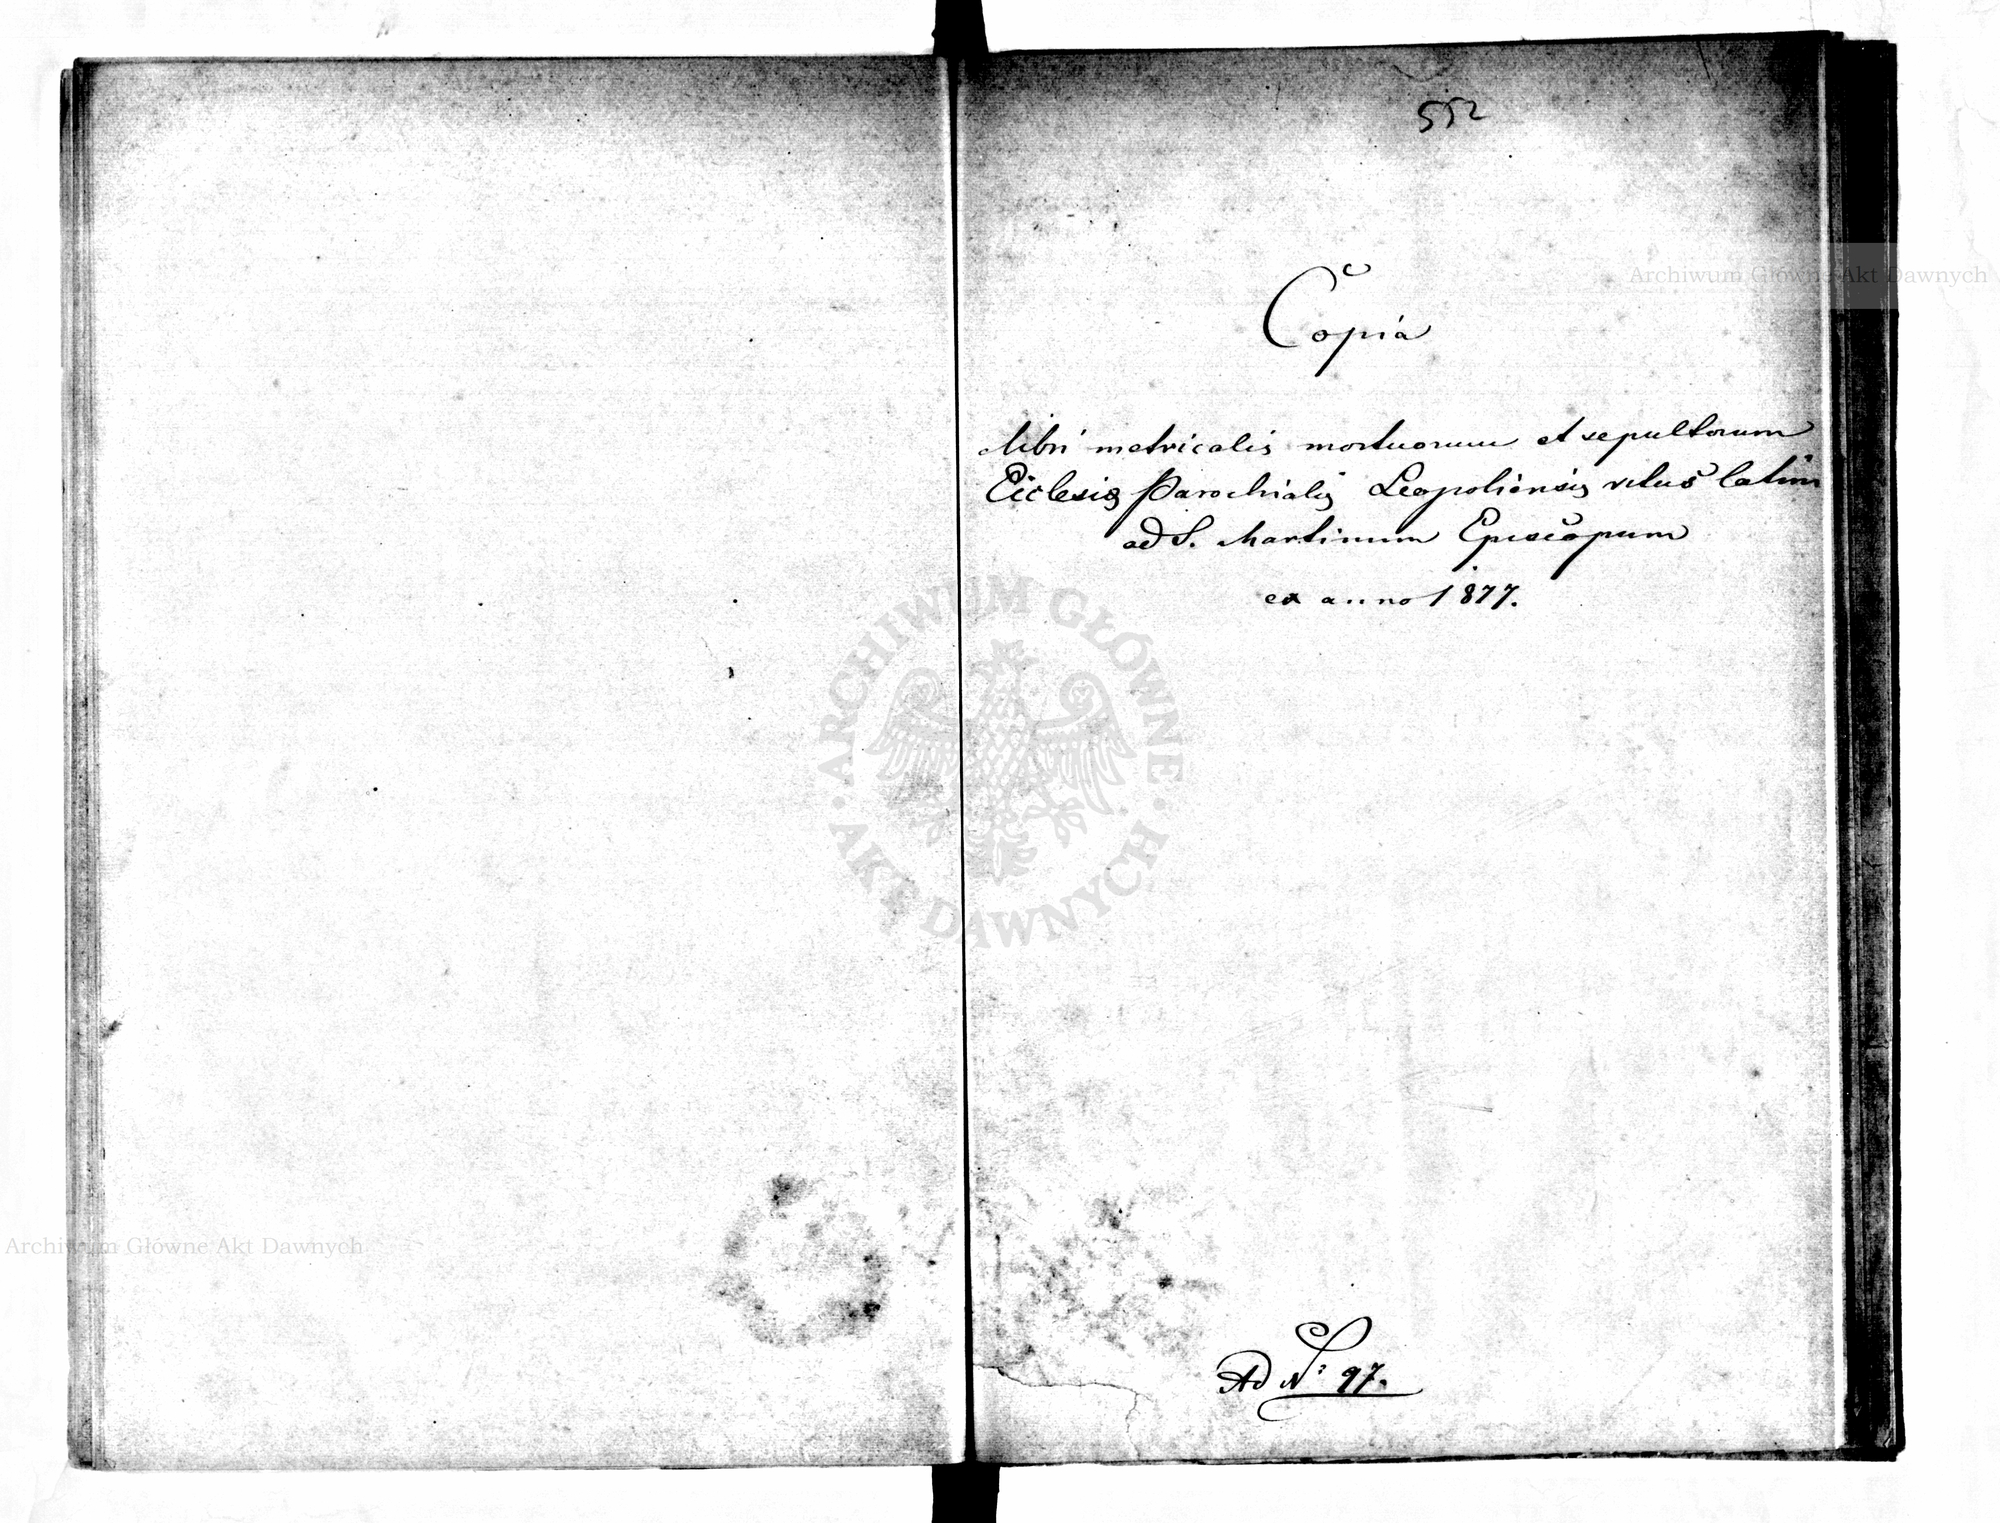 552
Copia
libri metricalis mortuorum et sepultorum
Ecclesiæ Parochialis Leopoliensis ritus latini
ad S. Martinum Episcopum
ex anno 1877.
Ad No 97.
Archiwum Główne Akt Dawnych
ARCHIWUM GŁÓWNE AKT DAWNYCH
Archiwum Główne Akt Dawnych